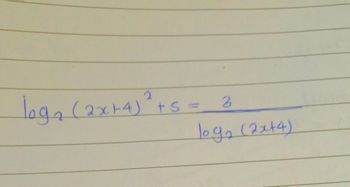 log₂ (2x+4)² + 5 = 3
log₂ (2x+4)